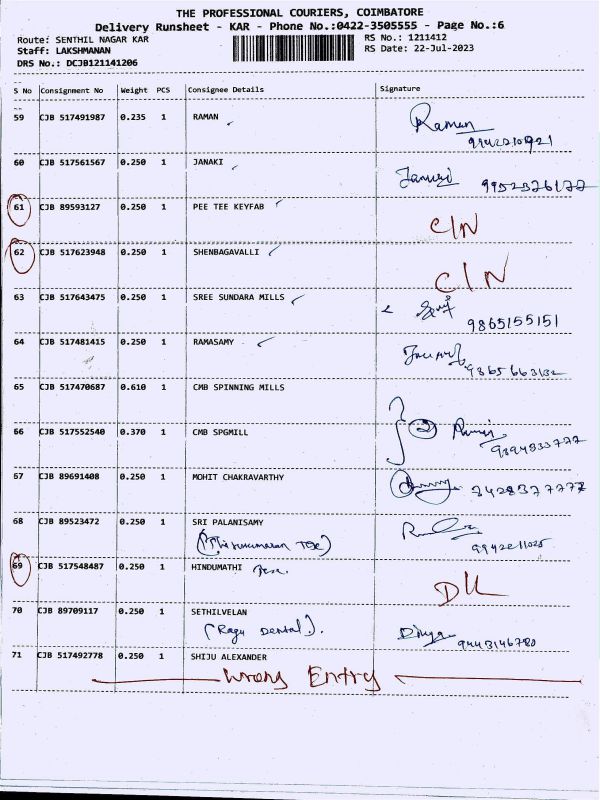 THE PROFESSIONAL COURIERS, COIMBATORE
Delivery Runsheet - KAR - Phone No.:0422-3505555 - Page No.:6
Route: SENTHIL NAGAR KAR RS No.: 1211412
Staff: LAKSHMANAN RS Date: 22-Jul-2023
DRS No.: DCJB121141206
S No Consignment No Weight PCS Consignee Details Signature
59 CJB 517491987 0.235 1 RAMAN Raman
60 CJB 517561567 0.250 1 JANAKI
61 CJB 89593127 0.250 1 PEE TEE KEYFAB C/N
62 CJB 517623948 0.250 1 SHENBAGAVALLI C/N
63 CJB 517643475 0.250 1 SREE SUNDARA MILLS
9865155151
64 CJB 517481415 0.250 1 RAMASAMY
65 CJB 517470687 0.610 1 CMB SPINNING MILLS
66 CJB 517552540 0.370 1 CMB SPGMILL 2
67 CJB 89691408 0.250 1 MOHIT CHAKRAVARTHY
68 CJB 89523472 0.250 1 SRI PALANISAMY
69 CJB 517548487 0.250 1 HINDUMATHI DL
70 CJB 89709117 0.250 1 SETHILVELAN
(Ragu Dental). Divya 9443146780
71 CJB 517492778 0.250 1 SHIJU ALEXANDER
Wrong Entry